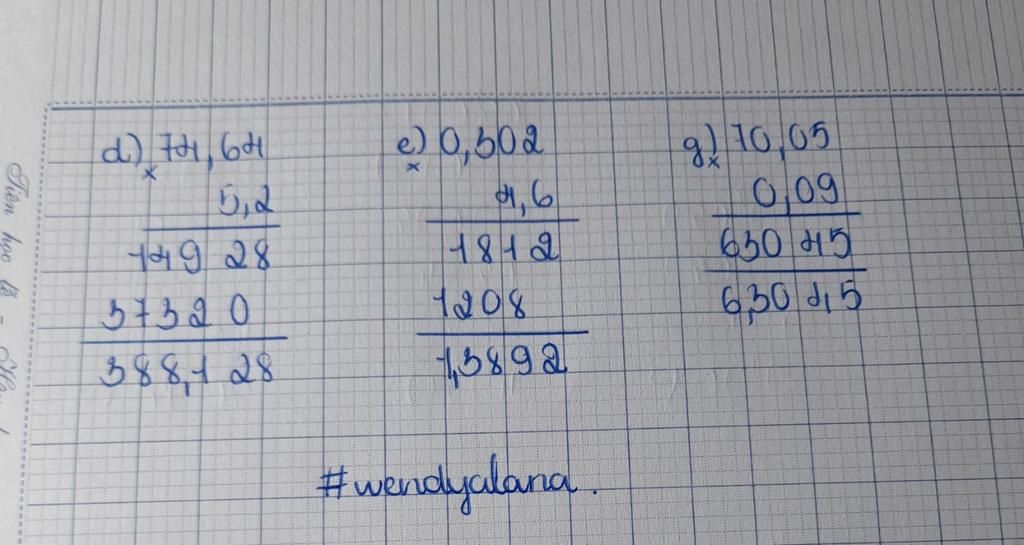 d) 74,64
×
5,2
149 28
3732 0
388,1 28
e) 0,302
×
4,6
1812
1208
1,3892
g) 70,05
×
0,09
630 45
6,30 45
#wendyalana.
Tiên học lễ -